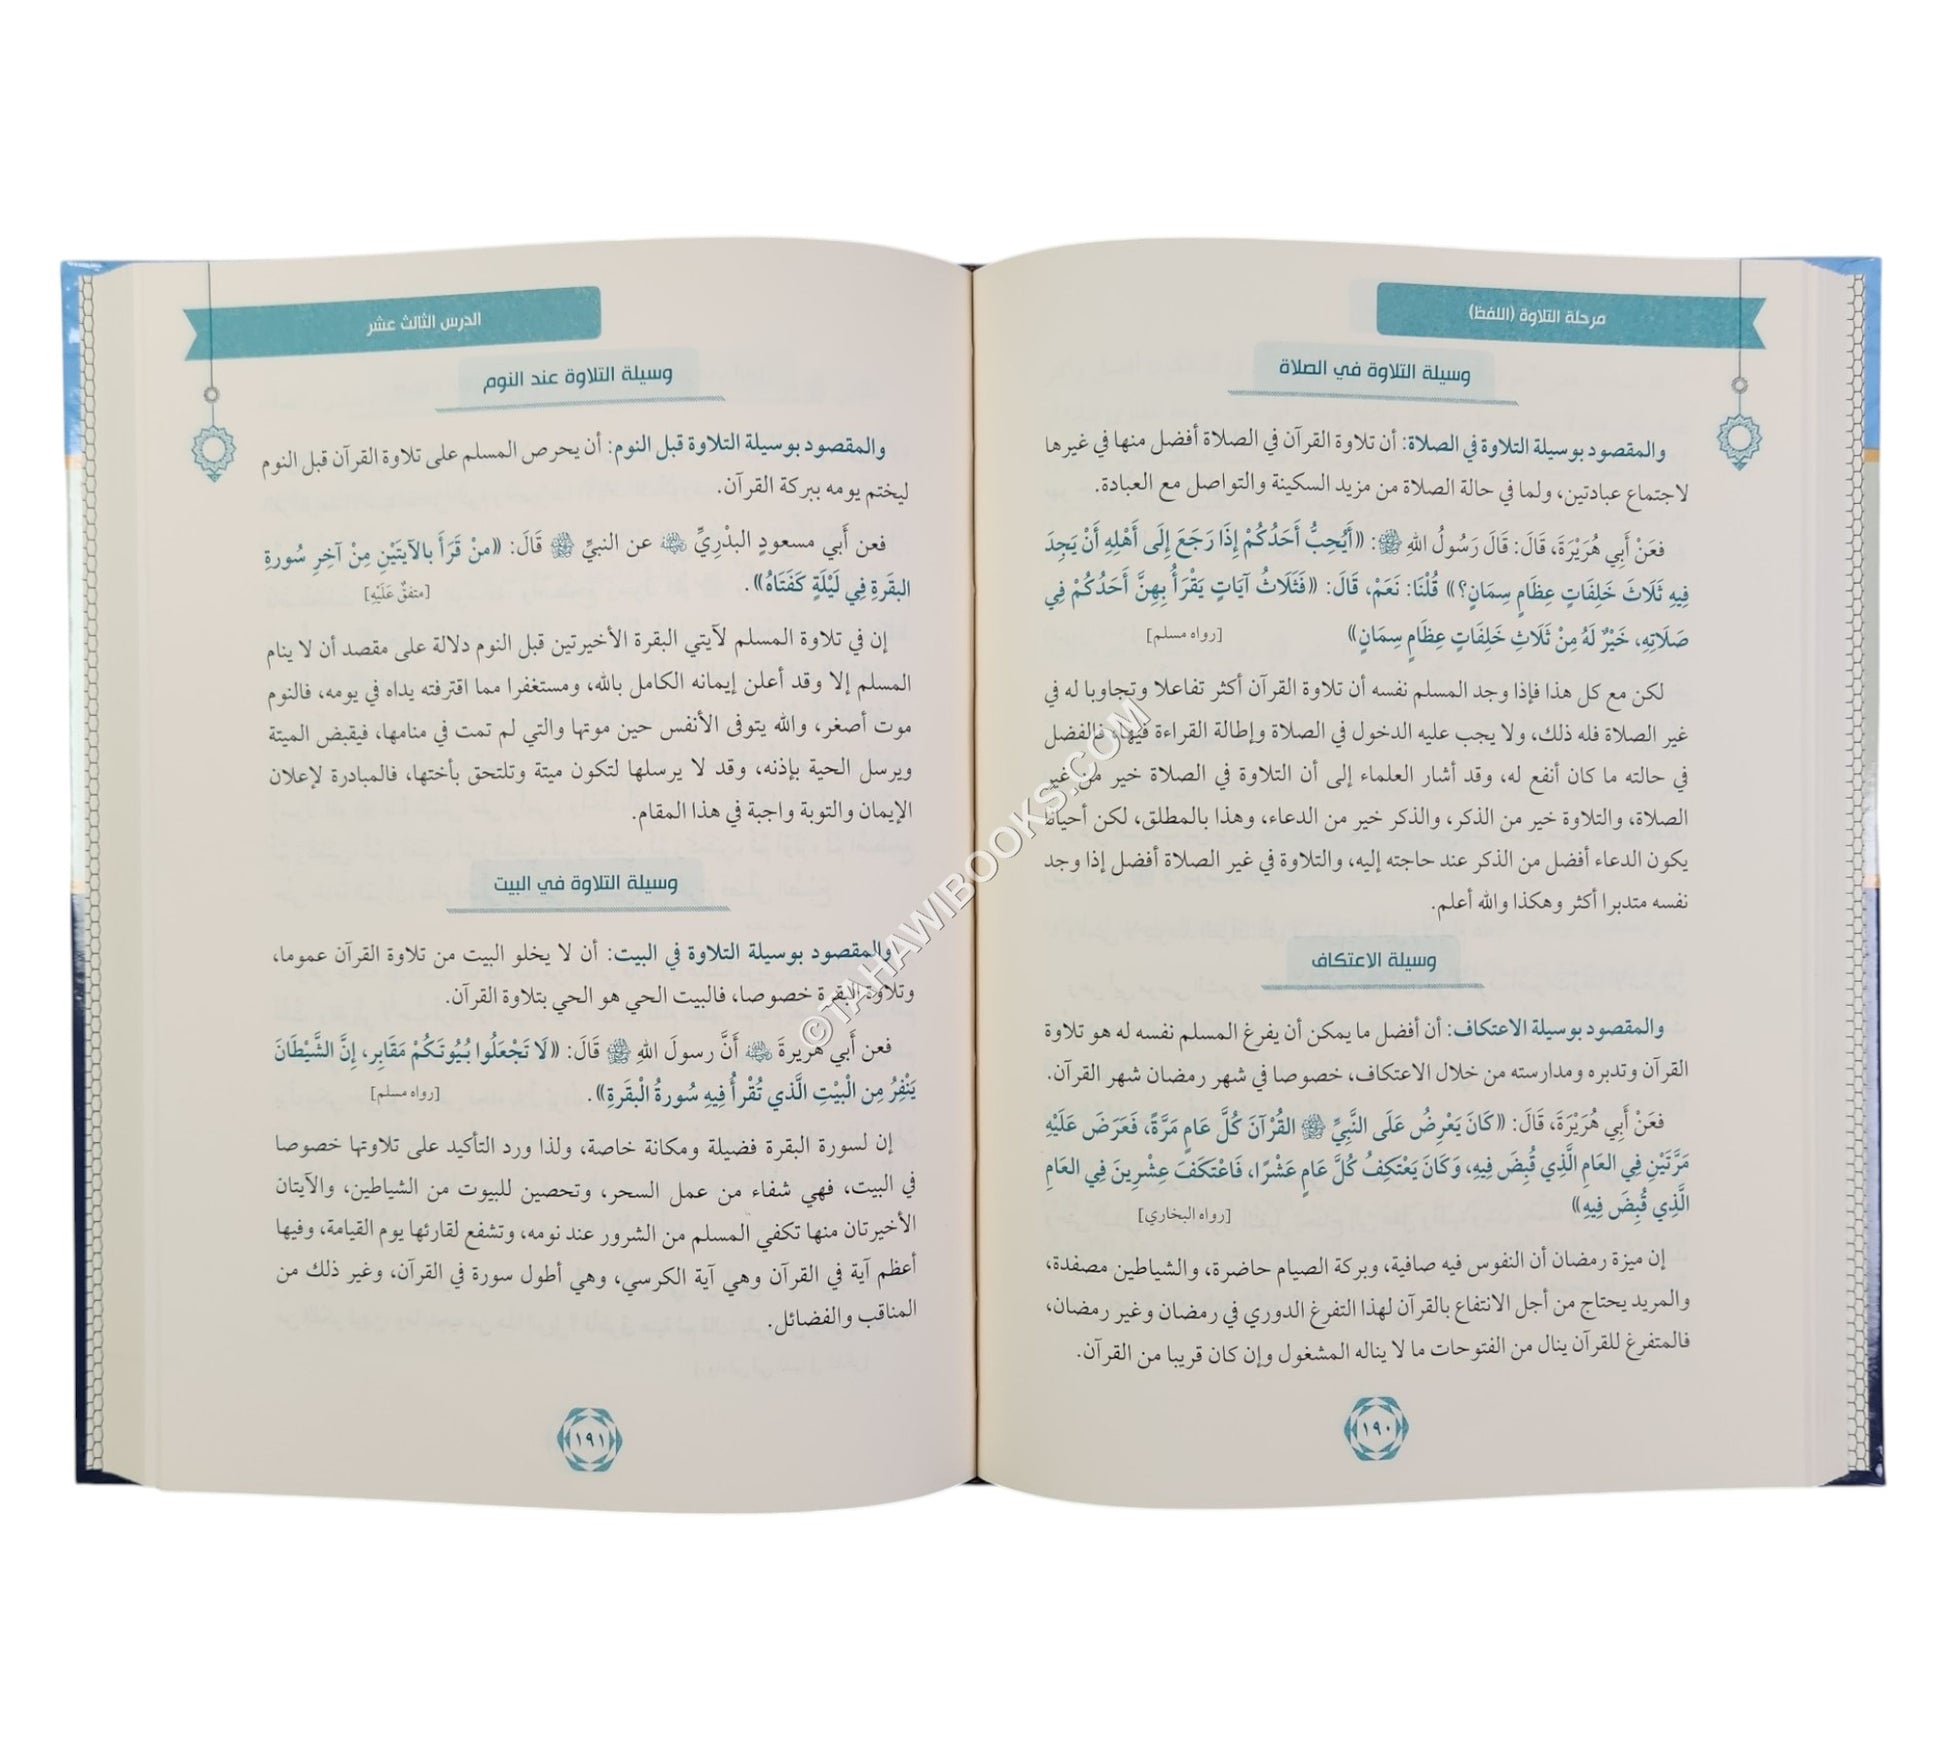 مرحلة التلاوة (اللفظ)
وسيلة التلاوة في الصلاة
والمقصود بوسيلة التلاوة في الصلاة: أن تلاوة القرآن في الصلاة أفضل منها في غيرها
لاجتماع عبادتين، ولما في حالة الصلاة من مزيد السكينة والتواصل مع العبادة.
فعَنْ أَبِي هُرَيْرَةَ، قَالَ: قَالَ رَسُولُ اللهِ ﷺ: «أَيُحِبُّ أَحَدُكُمْ إِذَا رَجَعَ إِلَى أَهْلِهِ أَنْ يَجِدَ
فِيهِ ثَلَاثَ خَلِفَاتٍ عِظَامٍ سِمَانٍ؟» قُلْنَا: نَعَمْ، قَالَ: «فَثَلَاثُ آيَاتٍ يَقْرَأُ بِهِنَّ أَحَدُكُمْ فِي
صَلَاتِهِ، خَيْرٌ لَهُ مِنْ ثَلَاثِ خَلِفَاتٍ عِظَامٍ سِمَانٍ» [رواه مسلم]
لكن مع كل هذا فإذا وجد المسلم نفسه أن تلاوة القرآن أكثر تفاعلا وتجاوبا له في
غير الصلاة فله ذلك، ولا يجب عليه الدخول في الصلاة وإطالة القراءة فيها، فالفضل
في حالته ما كان أنفع له، وقد أشار العلماء إلى أن التلاوة في الصلاة خير من غير
الصلاة، والتلاوة خير من الذكر، والذكر خير من الدعاء، وهذا بالمطلق، لكن أحيانا
يكون الدعاء أفضل من الذكر عند حاجته إليه، والتلاوة في غير الصلاة أفضل إذا وجد
نفسه متدبرا أكثر وهكذا والله أعلم.
وسيلة الاعتكاف
والمقصود بوسيلة الاعتكاف: أن أفضل ما يمكن أن يفرغ المسلم نفسه له هو تلاوة
القرآن وتدبره ومدارسته من خلال الاعتكاف، خصوصا في شهر رمضان شهر القرآن.
فعَنْ أَبِي هُرَيْرَةَ، قَالَ: «كَانَ يَعْرِضُ عَلَى النَّبِيِّ ﷺ القُرْآنَ كُلَّ عَامٍ مَرَّةً، فَعَرَضَ عَلَيْهِ
مَرَّتَيْنِ فِي العَامِ الَّذِي قُبِضَ فِيهِ، وَكَانَ يَعْتَكِفُ كُلَّ عَامٍ عَشْرًا، فَاعْتَكَفَ عِشْرِينَ فِي العَامِ
الَّذِي قُبِضَ فِيهِ» [رواه البخاري]
إن ميزة رمضان أن النفوس فيه صافية، وبركة الصيام حاضرة، والشياطين مصفدة،
والمريد يحتاج من أجل الانتفاع بالقرآن لهذا التفرغ الدوري في رمضان وغير رمضان،
فالمتفرغ للقرآن ينال من الفتوحات ما لا يناله المشغول وإن كان قريبا من القرآن.
١٩٠
الدرس الثالث عشر
وسيلة التلاوة عند النوم
والمقصود بوسيلة التلاوة قبل النوم: أن يحرص المسلم على تلاوة القرآن قبل النوم
ليختم يومه ببركة القرآن.
فعن أَبي مسعودٍ البدْرِيِّ ﵁ عن النبيِّ ﷺ قَالَ: «منْ قَرَأَ بالآيتَيْنِ مِنْ آخِرِ سُورةِ
البقَرةِ فِي لَيْلَةٍ كَفَتَاهُ». [متفقٌ عَلَيْهِ]
إن في تلاوة المسلم لآيتي البقرة الأخيرتين قبل النوم دلالة على مقصد أن لا ينام
المسلم إلا وقد أعلن إيمانه الكامل بالله، ومستغفرا مما اقترفته يداه في يومه، فالنوم
موت أصغر، والله يتوفى الأنفس حين موتها والتي لم تمت في منامها، فيقبض الميتة
ويرسل الحية بإذنه، وقد لا يرسلها لتكون ميتة وتلتحق بأختها، فالمبادرة لإعلان
الإيمان والتوبة واجبة في هذا المقام.
وسيلة التلاوة في البيت
والمقصود بوسيلة التلاوة في البيت: أن لا يخلو البيت من تلاوة القرآن عموما،
وتلاوة البقرة خصوصا، فالبيت الحي هو الحي بتلاوة القرآن.
فعن أَبي هُريرةَ ﵁ أَنَّ رسولَ اللهِ ﷺ قَالَ: «لَا تَجْعَلُوا بُيُوتَكُمْ مَقَابِر، إِنَّ الشَّيْطَانَ
يَنْفِرُ مِن الْبَيْتِ الَّذي تُقْرأُ فِيهِ سُورةُ الْبقَرةِ». [رواه مسلم]
إن لسورة البقرة فضيلة ومكانة خاصة، ولذا ورد التأكيد على تلاوتها خصوصا
في البيت، فهي شفاء من عمل السحر، وتحصين للبيوت من الشياطين، والآيتان
الأخيرتان منها تكفي المسلم من الشرور عند نومه، وتشفع لقارئها يوم القيامة، وفيها
أعظم آية في القرآن وهي آية الكرسي، وهي أطول سورة في القرآن، وغير ذلك من
المناقب والفضائل.
١٩١
©TAHAWIBOOKS.COM